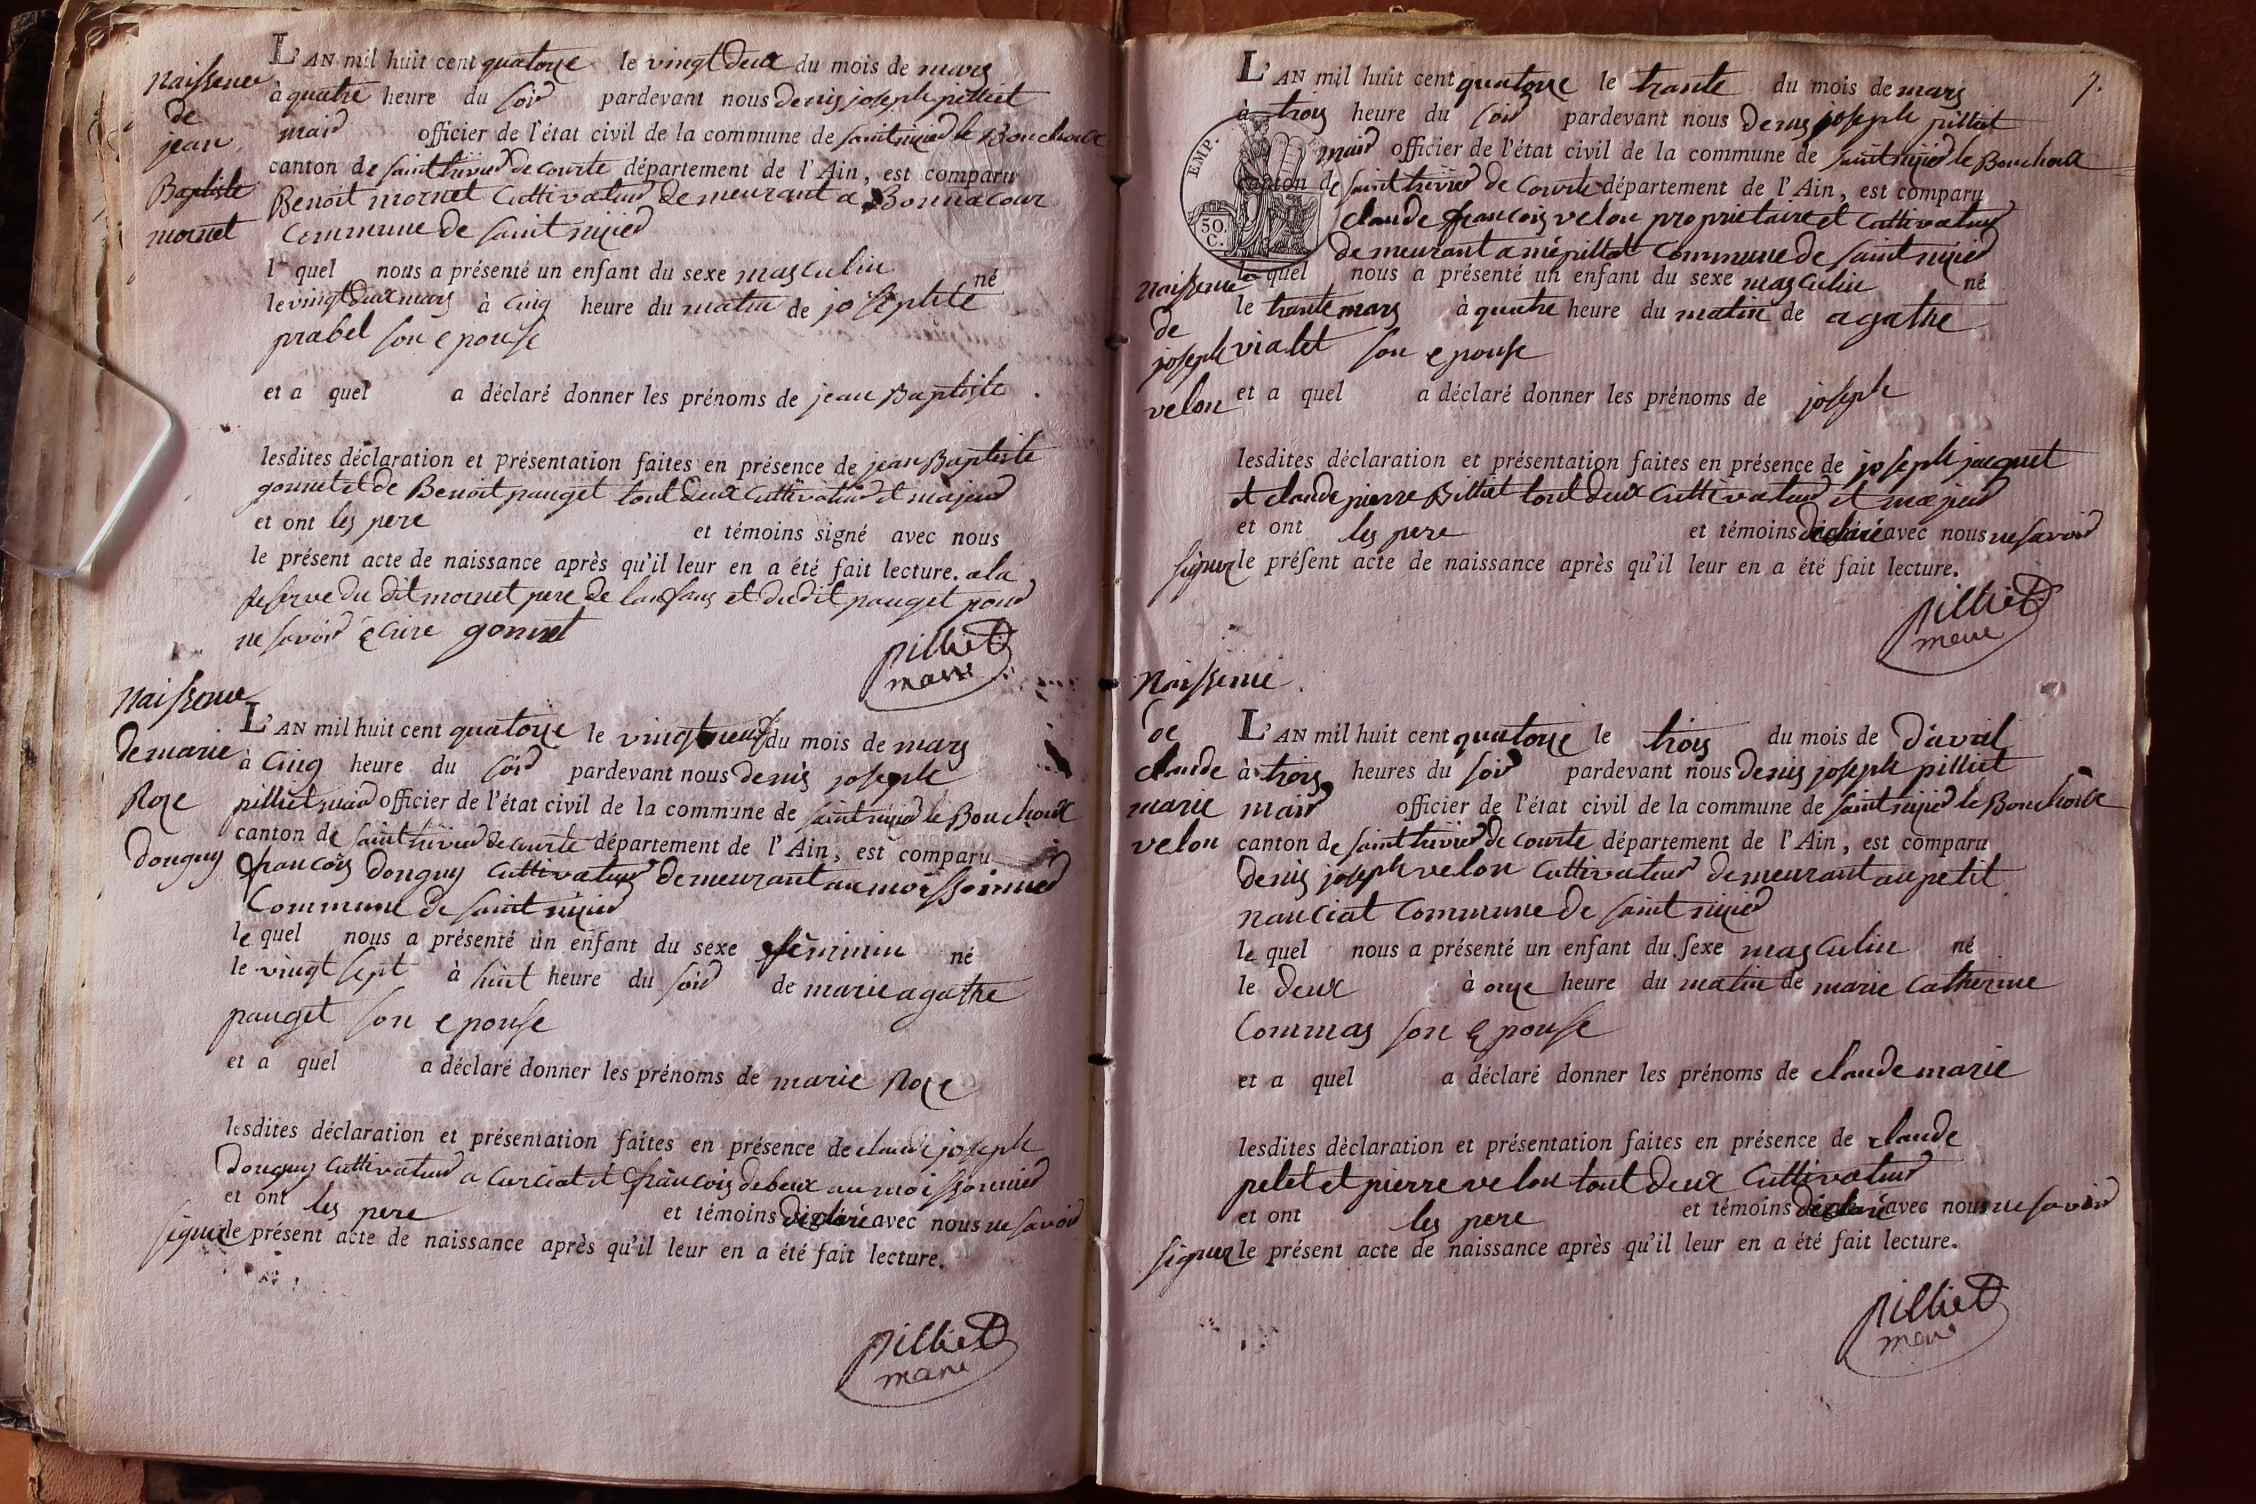 Naissence
de
jean
Baptiste
mornet
L'AN mil huit cent quatorze le vingt deux du mois de mars
à quatre heure du soir pardevant nous denis joseph pilliet
maire officier de l'état civil de la commune de saint nizier le Bouchoux
canton de saint trivier de courte département de l'Ain, est comparu
Benoit mornet Cultivateur demeurant a Bonnacour
Commune de saint nizier
l quel nous a présenté un enfant du sexe masculin né
le vingt deux mars à cinq heure du matin de josephte
prabel son epouse
et a quel a déclaré donner les prénoms de jean Baptiste .
lesdites déclaration et présentation faites en présence de jean Baptiste
gonnet et de Benoit pauget tout deux Cultivateur et majeur
et ont les pere et témoins signé avec nous
le présent acte de naissance après qu'il leur en a été fait lecture. a la
reserve du dit mornet pere de lanfans et dudit pauget pour
ne savoir ecrire gonnet
pilliet
maire
Naissence
de marie
Roze
donguy
L'AN mil huit cent quatorze le vingt neuf du mois de mars
à cinq heure du soir pardevant nous denis joseph
pilliet maire officier de l'état civil de la commune de saint nizier le Bouchoux
canton de saint trivier de courte département de l'Ain, est comparu
francois donguy Cultivateur demeurant au moissonnier
Commune de saint nizier
le quel nous a présenté un enfant du sexe féminin né
le vingt sept à huit heure du soir de marie agathe
pauget son epouse
et a quel a déclaré donner les prénoms de marie Roze
lesdites déclaration et présentation faites en présence de claude joseph
donguy Cultivateur a Curciat et francois debeux au moissonnier
et ont les pere et témoins déclaré avec nous ne savoir
signer le présent acte de naissance après qu'il leur en a été fait lecture.
pilliet
maire
7.
L'AN mil huit cent quatorze le trante du mois de mars
à trois heure du soir pardevant nous denis joseph pilliet
maire officier de l'état civil de la commune de saint nizier le Bouchoux
canton de saint trivier de Courte département de l'Ain, est comparu
EMP.
50.
C.
claude francois velon proprietaire et Cultivateur
demeurant a mépillat Commune de saint nizier
le quel nous a présenté un enfant du sexe masculin né
Naissence
de
joseph
velon
le trante mars à quatre heure du matin de agathe
vialet son epouse
et a quel a déclaré donner les prénoms de joseph
lesdites déclaration et présentation faites en présence de joseph jacquet
et claude pierre Billiet tout deux Cultivateur et majeur
et ont les pere et témoins déclaré avec nous ne savoir
signer le présent acte de naissance après qu'il leur en a été fait lecture.
pilliet
maire
Naissence
de
claude
marie
velon
L'AN mil huit cent quatorze le trois du mois de d'avril
à trois heures du soir pardevant nous denis joseph pilliet
maire officier de l'état civil de la commune de saint nizier le Bouchoux
canton de saint trivier de courte département de l'Ain, est comparu
denis joseph velon Cultivateur demeurant au petit
nanciat Commune de saint nizier
le quel nous a présenté un enfant du sexe masculin né
le deux à onze heure du matin de marie Catherine
Commas son epouse
et a quel a déclaré donner les prénoms de claude marie
lesdites déclaration et présentation faites en présence de claude
pelet et pierre velon tout deux Cultivateur
et ont les pere et témoins déclaré avec nous ne savoir
signer le présent acte de naissance après qu'il leur en a été fait lecture.
pilliet
maire